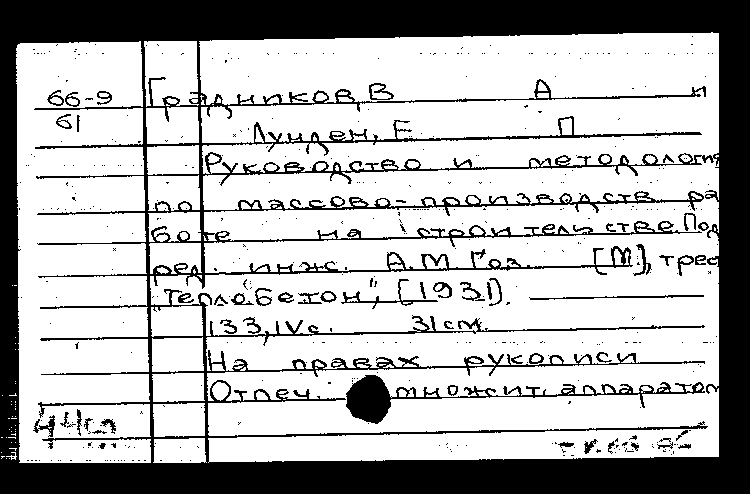 66-9 Градников, В А и
61
Лунден, Е П
Руководство и методология
по массово-производств ра
боте на строительстве. Под
ред. инж. А.М Гоз. [М], трес
"Теплобетон", [1931].
133, IVс. 31см.
На правах рукописи
Отпеч. множит. аппаратом